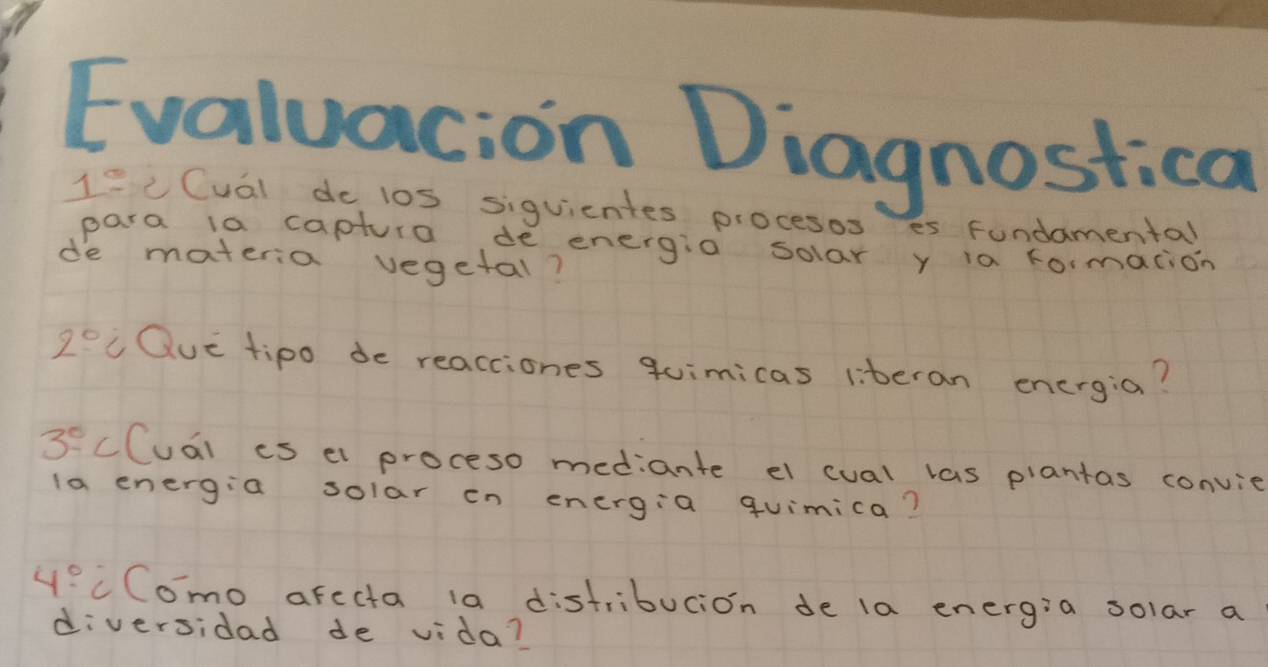 Evaluación Diagnostica
1º ¿Cuál de los siguientes procesos es fundamental
para la captura de energia solar y la formación
de materia vegetal?
2º ¿Qué tipo de reacciones quimicas liberan energia?
3º ¿Cuál es el proceso mediante el cual las plantas convie
la energia solar en energia quimica?
4º ¿Cómo afecta la distribución de la energia solar a
diversidad de vida?